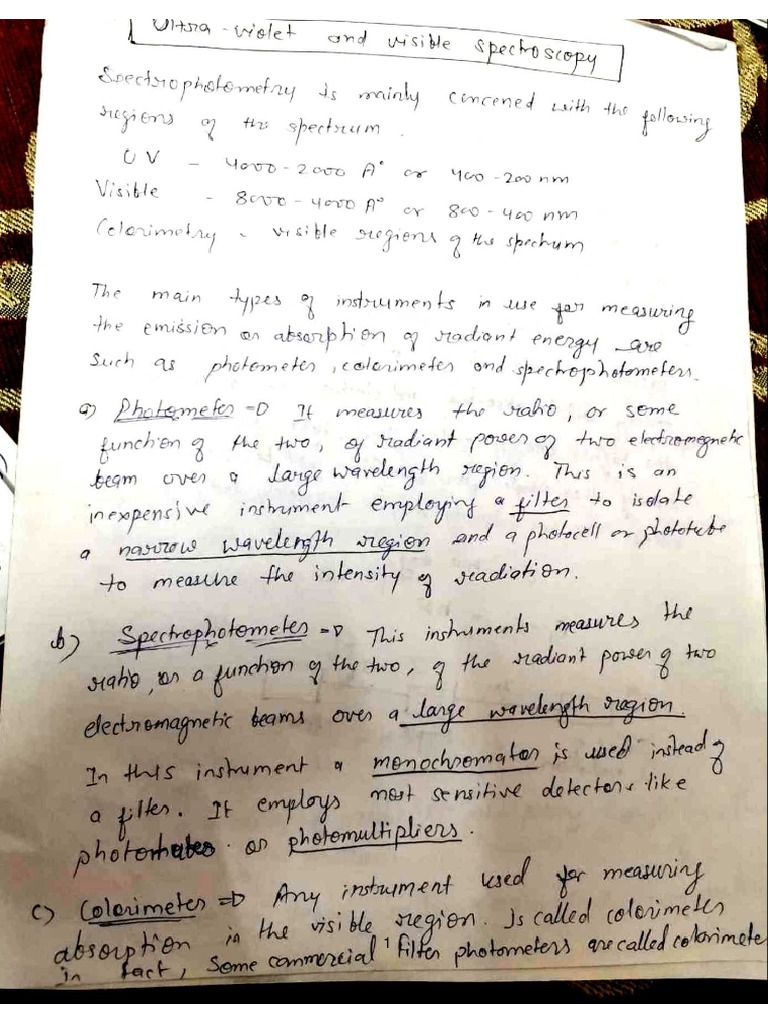 Ultra-violet and visible spectroscopy
Spectrophotometry is mainly concened with the following
regions of the spectrum.
UV - 4000-2000 A° or 400-200 nm
Visible - 8000-4000 A° or 800-400 nm
Colorimetry - visible regions of the spectrum
The main types of instruments in use for measuring
the emission or absorption of radiant energy are
such as photometer, colorimeter and spectrophotometers.
a) Photometer => It measures the ratio, or some
function of the two, of radiant power of two electromegnetic
beam over a large wavelength region. This is an
inexpensive instrument employing a filter to isolate
a narrow wavelength region and a photocell or phototube
to measure the intensity of radiation.
b) Spectrophotometer => This instruments measures the
ratio, or a function of the two, of the radiant power of two
electromagnetic beams over a large wavelength region.
In this instrument a monochromator is used instead of
a filter. It employs most sensitive detectors like
or photomultipliers.
c) Colorimeter => Any instrument used for measuring
absorption in the visible region. Is called colorimeter
in fact, some commercial filter photometers are called colorimete